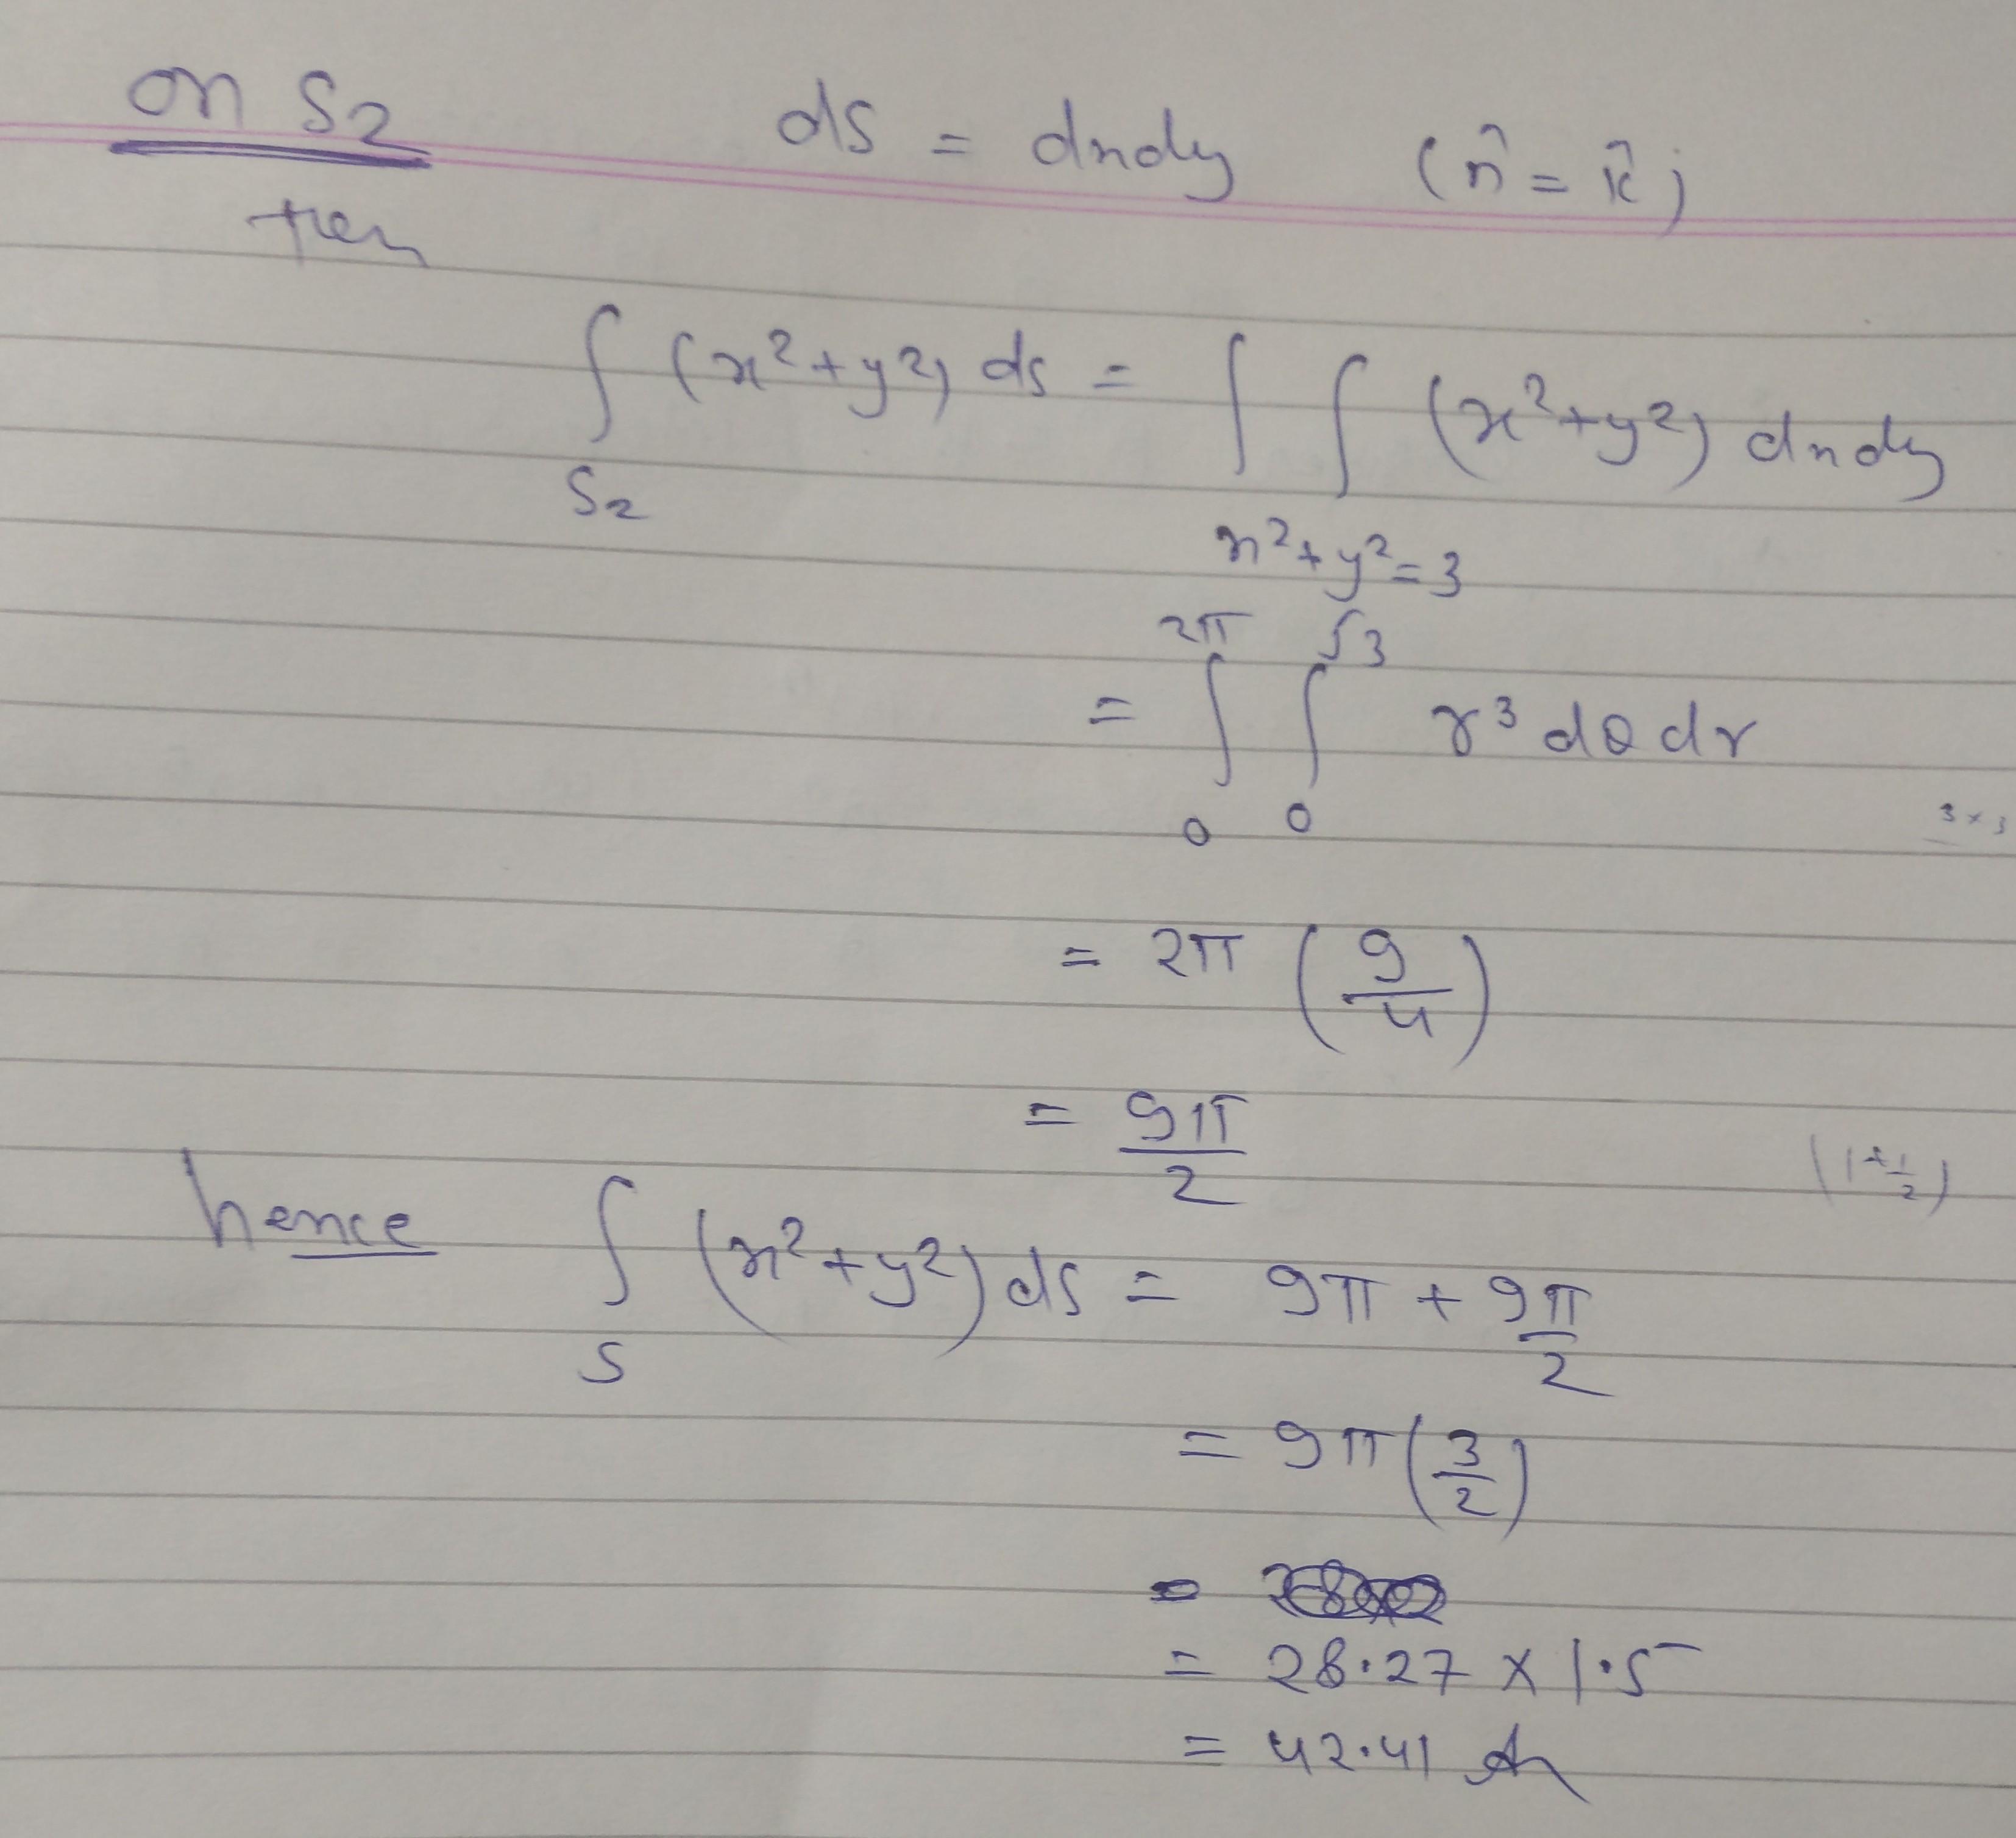 on S2 ds = dxdy (n̂ = k̂)
then
∫ (x²+y²) ds = ∫ ∫ (x²+y²) dxdy
S2 x²+y²=3
2π √3
= ∫ ∫ r³ dθ dr
0 0
3×3
= 2π (9/4)
= 9π/2
(1+1/2)
hence ∫ (x²+y²) ds = 9π + 9π/2
S
= 9π(3/2)
=
= 28.27 × 1.5
= 42.41